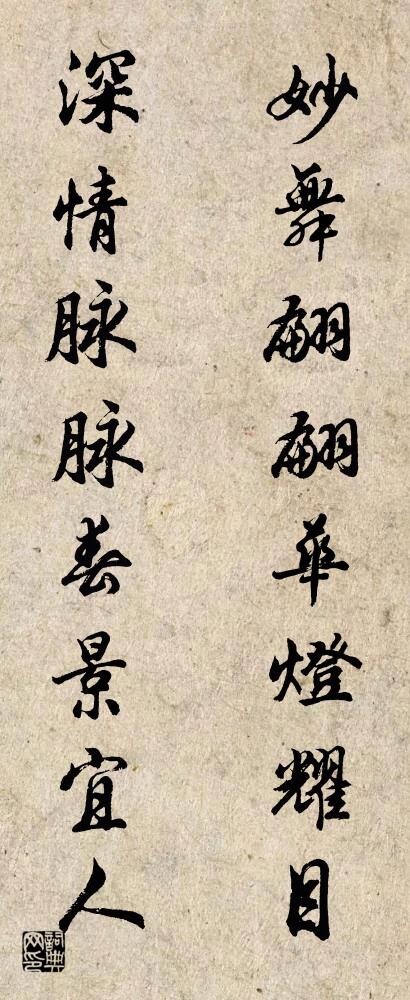 妙舞翩翩華燈耀目
深情脉脉春景宜人
詞典网印